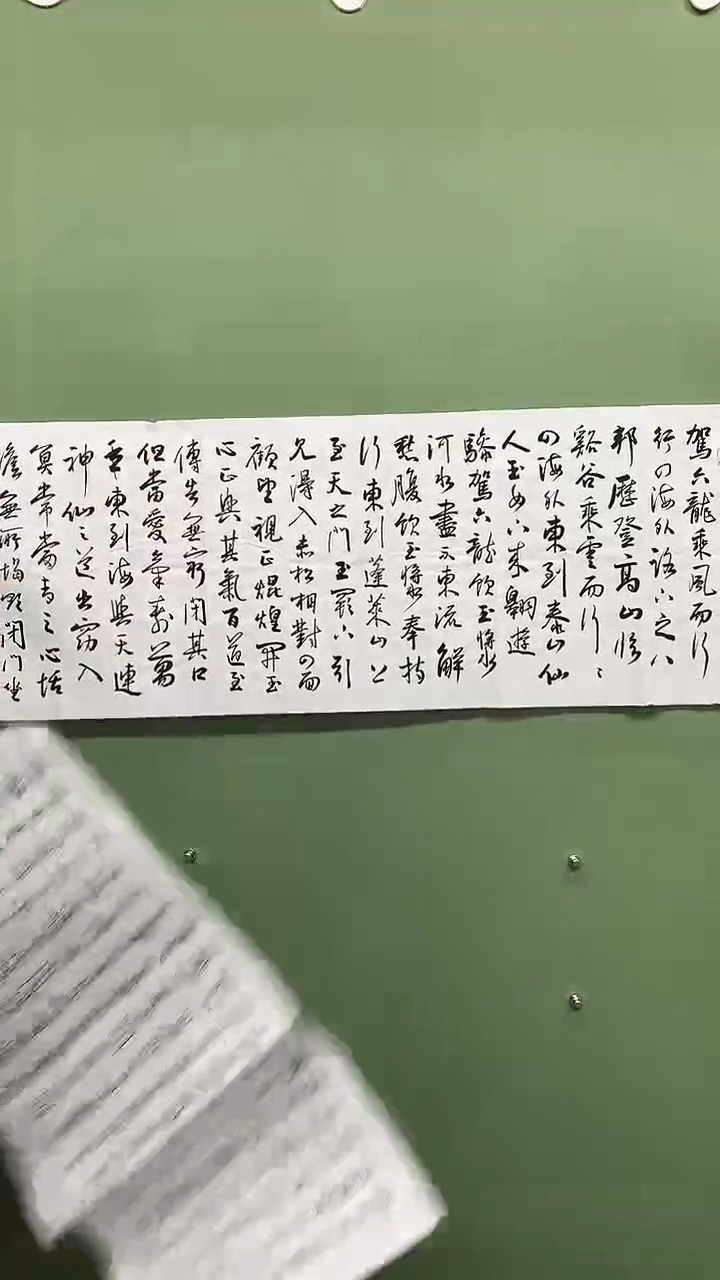 駕六龍乘風而行
行四海外路下之八
邦歷登高山臨
谿谷乘雲而行〻
四海外東到泰山仙
人玉女下來翱遊
驂駕六龍飲玉漿
河水盡不東流解
愁腹飲玉漿奉持
行東到蓬萊山上
至天之門玉闕下引
見得入赤松相對四面
顧望視正焜煌開玉
心正興其氣百道至
傳告無窮閉其口
但當愛氣壽萬
年東到海與天連
神仙之道出窈入
冥常當專之心恬
澹無所愒欲閉門坐